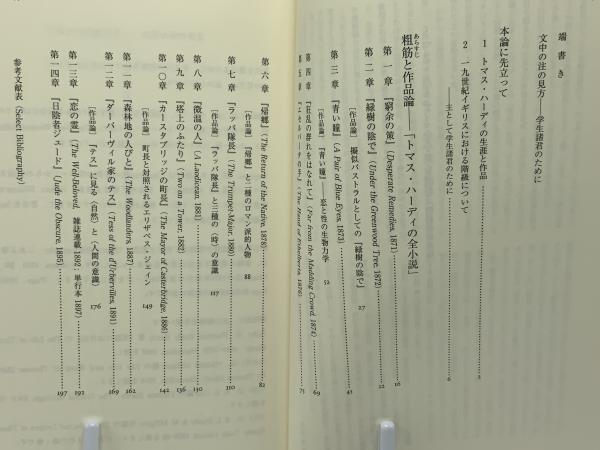 端書き
文中の注の見方——学生諸君のために
本論に先立って
1 トマス・ハーディの生涯と作品 2
2 一九世紀イギリスにおける階級について
——主として学生諸君のために 6
粗筋と作品論——「トマス・ハーディの全小説」
あらすじ
第一章 『窮余の策』(Desperate Remedies, 1871) 16
第二章 『緑樹の陰で』(Under the Greenwood Tree, 1872) 22
［作品論］ 擬似パストラルとしての『緑樹の陰で』 27
第三章 『青い瞳』(A Pair of Blue Eyes, 1873) 41
［作品論］『青い瞳』——恋と性の生物力学 52
第四章 『狂乱の群れをはなれて』(Far from the Madding Crowd, 1874) 69
第五章 (The Hand of Ethelberta, 1876) 75
第六章 『帰郷』(The Return of the Native, 1878) 82
［作品論］『帰郷』と二種のロマン派的人物 88
第七章 『ラッパ隊長』(The Trumpet-Major, 1880) 110
［作品論］『ラッパ隊長』と三種の〈時〉の意識 117
第八章 『微温の人』(A Laodicean, 1881) 130
第九章 『塔上のふたり』(Two on a Tower, 1882) 136
第一〇章 『カースタブリッジの町長』(The Mayor of Casterbridge, 1886) 142
［作品論］ 町長と対照されるエリザベス・ジェイン 149
第一一章 『森林地の人びと』(The Woodlanders, 1887) 162
第一二章 『ダーバーヴィル家のテス』(Tess of the d'Urbervilles, 1891) 169
［作品論］『テス』に見る〈自然〉と〈人間の意識〉 176
第一三章 『恋の霊』(The Well-Beloved, 雑誌連載 1892; 単行本 1897) 192
第一四章 『日陰者ジュード』(Jude the Obscure, 1895) 197
参考文献表 (Select Bibliography)